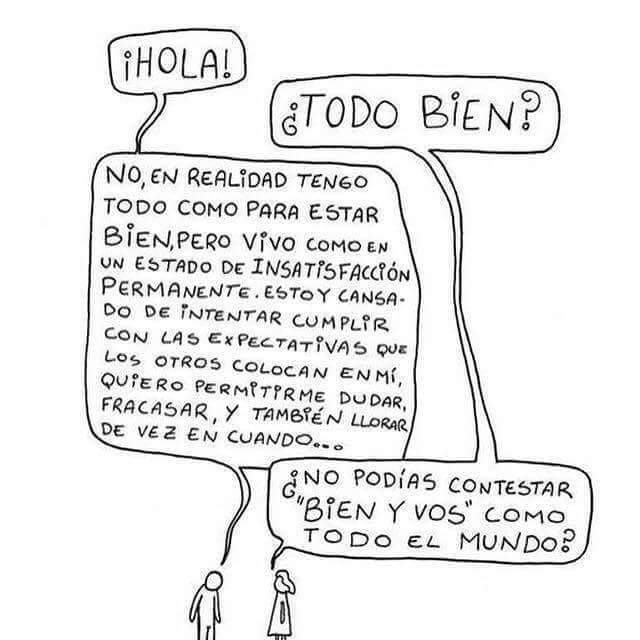 ¡HOLA!
¿TODO BIEN?
NO, EN REALIDAD TENGO
TODO COMO PARA ESTAR
BIEN, PERO VIVO COMO EN
UN ESTADO DE INSATISFACCIÓN
PERMANENTE. ESTOY CANSA-
DO DE INTENTAR CUMPLIR
CON LAS EXPECTATIVAS QUE
LOS OTROS COLOCAN EN MÍ,
QUIERO PERMITIRME DUDAR,
FRACASAR, Y TAMBIÉN LLORAR
DE VEZ EN CUANDO...
¿NO PODÍAS CONTESTAR
"BIEN Y VOS" COMO
TODO EL MUNDO?